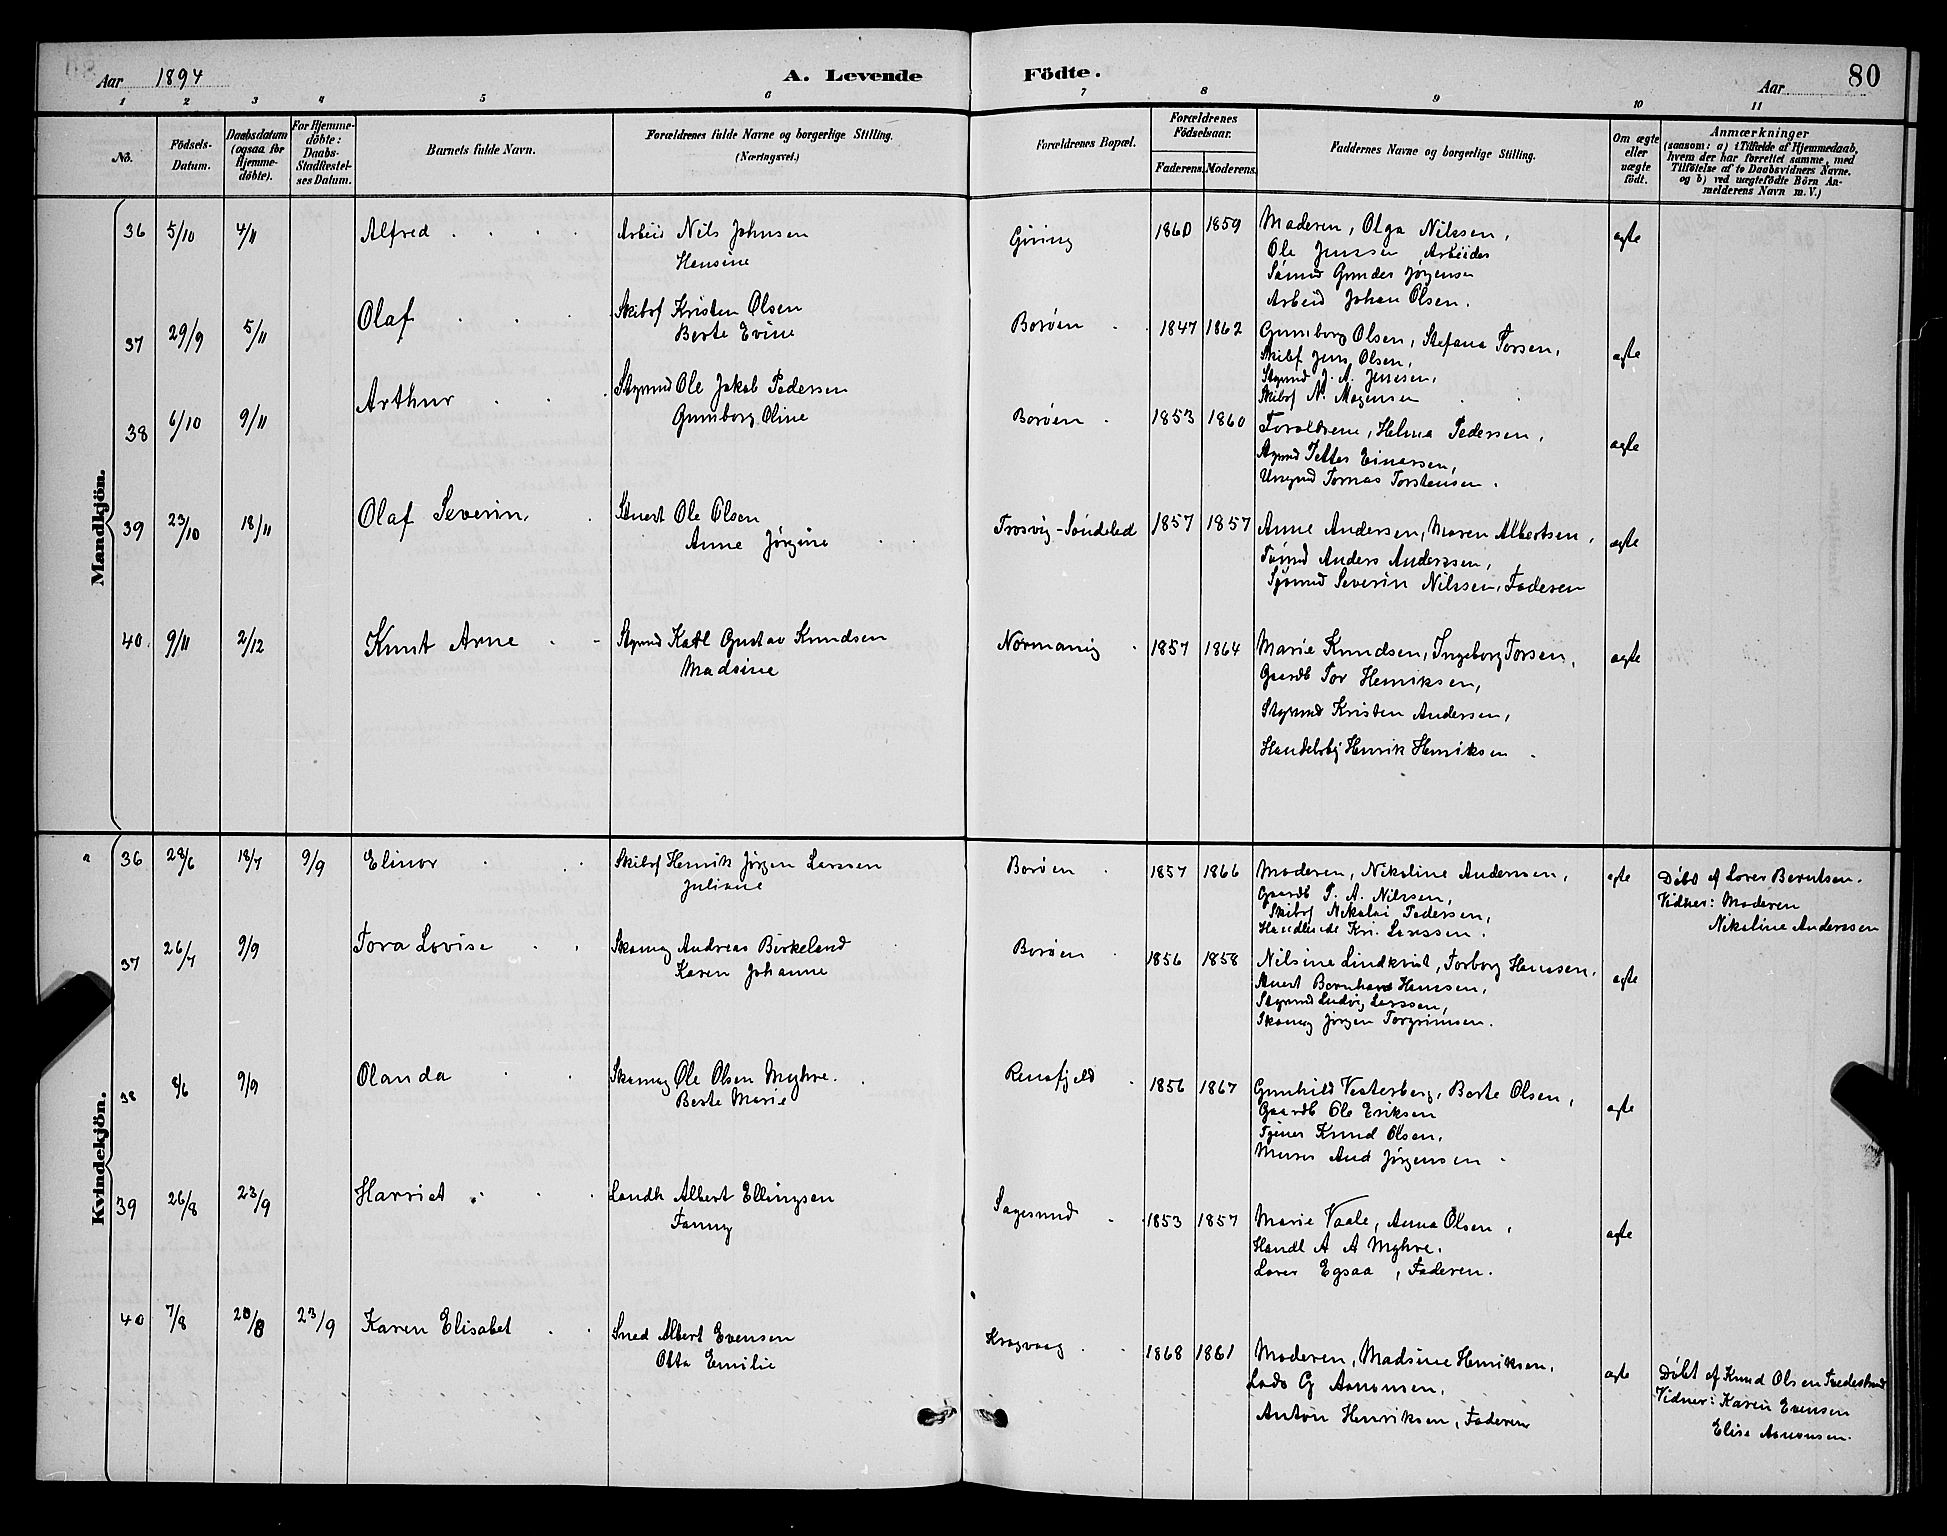 Aar 1894
A. Levende Födte.
Aar 80
1 2 3 4 5 6 7 8 9 10 11
No.
Födsels-Datum.
Daabsdatum (ogsaa for Hjemme-döbte).
For Hjemme-döbte: Daabs-Stadfæstel-ses Datum.
Barnets fulde Navn.
Forældrenes fulde Navne og borgerlige Stilling.
(Næringsvei.)
Forældrenes Bopæl.
Forældrenes Födselsaar.
Faderens. Moderens.
Faddernes Navne og borgerlige Stilling.
Om ægte eller uægte födt.
Anmærkninger
(saasom: a) i Tilfælde af Hjemmedaab,
hvem der har forrettet samme, med
Tilföielse af to Daabsvidners Navne.
og b) ved uægtefödte Börn An-
melderens Navn m. V.)
Mandkjön.
36 5/10 4/11 Alfred Arbeid Nils Johnsen
Hansine
Giving 1860 1859 Moderen, Olga Nilssen,
Ole Jenssen Arbeider
Jørgensen
Arbeid Johan Olsen.
ægte
37 29/9 5/11 Olaf Skibsf Kristen Olsen
Berte Evine
Borøen 1847 1862 Gunnborg Olsen, Stefana Torsen,
Skibsf Jens Olsen,
Styrmd J. A. Jenssen,
Skibsf N. Mogensen
ægte
38 6/10 9/11 Arthur Styrmd Ole Jakob Pedersen
Gunnborg Oline
Borøen 1853 1860 Forældrene, Helma Pedersen,
Styrmd Petter Einersen,
Ungmd Tomas Torstensen.
ægte
39 23/10 18/11 Olaf Severin Ole Olsen
Anne Jørgine
Trosvig-Søndeled 1857 1857 Anne Andersen, Maren Albertsen,
Anders Anderssen,
Sjømd Severin Nilssen, Faderen
ægte
40 9/11 2/12 Knut Arne Styrmd Karl Gustav Knudsen
Madsine
Normanvig 1857 1864 Marie Knudsen, Ingeborg Torsen,
Gaardb Tor Henriksen,
Styrmd Kristen Andersen,
Handelsbj Henrik Henriksen
ægte
Kvindekjön.
36 28/6 18/7 9/9 Elinor Skibsf Henrik Jørgen Larssen
Juliane
Borøen 1857 1866 Moderen, Nikoline Anderssen,
Gaardb P. A. Nilssen,
Skibsf Nikolai Pedersen,
Handlende Kr. Larssen.
ægte
Døbt af Lærer Berntsen.
Vidner: Moderen
Nikoline Anderssen
37 26/7 9/9 Tora Lovise Skomag Andreas Birkeland
Karen Johanne
Borøen 1856 1858 Nilsine Lindkvist, Torborg Hanssen,
Bernhard Hanssen,
Styrmd Ludvig Larssen,
Skomag Jørgen Torgrimsen.
ægte
38 8/6 9/9 Olanda Skomag Ole Olsen Myhre.
Berte Marie
Rensfjeld 1856 1867 Gunhild Vesterberg, Berte Olsen,
Gaardb Ole Eriksen
Tjener Knud Olsen,
Murer And Jørgensen
ægte
39 26/8 23/9 Harriet Landh Albert Ellingsen
Fanny
Sagesund 1853 1857 Marie Vaale, Anna Olsen,
Handl A A Myhre.
Lærer Egsaa, Faderen.
ægte
40 7/8 20/8 23/9 Karen Elisabet Sned Albert Evensen
Otta Emilie
Kragvaag 1868 1861 Moderen, Madsine Henriksen,
Lods G Aanonsen,
Anton Henriksen, Faderen
ægte
Døbt af Knud Olsen Tvedestrand
Vidner: Karen Evensen
Elise Aanonsen.